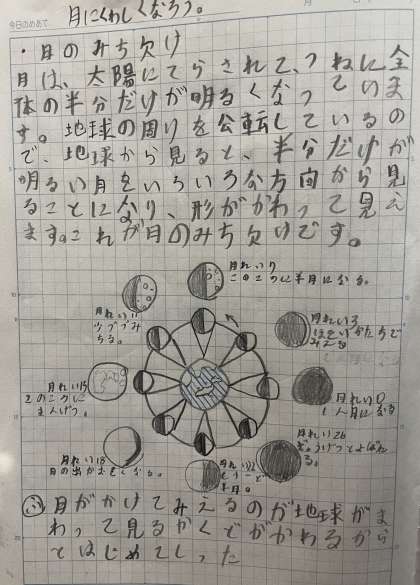 今日のめあて
月にくわしくなろう。
・月のみち欠け
月は、太陽にてらされて、つねに全
体の半分だけが明るくなっていま
す。地球の周りを公転しているの
で、地球から見ると、半分だけが
明るい月をいろいろな方向から見
ることになり、形がかわって見え
ます。これが月のみち欠けです。
月れい7
このころに半月になる。
月れい11
少しづつみ
ちる。
月れい3
ほそいかたちで
みえる
月れい15
このころに
まんげつ。
月れい0
月れい26
月れい18
月の出がおそくなる。
月れい22
半月。
月がかけてみえるのが地球がま
わって見るかくどがかわるから
とはじめてしった